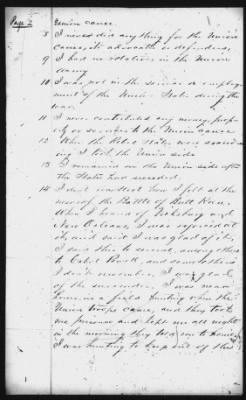 Page 2
Union cause.
8 I never did anything for the Union
cause, its advocates or defenders,
9 I had no relatives in the Union
Army
10 I was not in the service or employ-
ment of the United States during the
war,
11 I never contributed any money, prop-
erty or services to the Union cause
12 When the Rebel States were
I took the Union side
13 I remained on the Union side after
the State had seceded.
14 I don't recollect how I felt at the
news of the Battle of Bull Run,
When I heard of Vicksburg and
New Orleans, I was rejoiced at
it, and said I was glad of it,
I said this to several, among others
to and some others
I don't remember. I was glad
of the surrender. I was near
home in a field hunting when the
Union troops came, and they took
me prisoner and kept me all night
in the morning they told me to
I was hunting to keep out of the